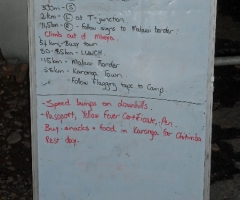 2km - (L) at T-junction
- Follow signs to Malawi border.
Climb out of Mbeya
- Busy town
- LUNCH.
- Malawi Border
- Karonga Town.
- Follow flagging tape to Camp.
- Speed bumps on downhills.
- Passport, Yellow Fever Certificate, Pen
- Buy snacks + food in Karonga for Chitimba
Rest day.